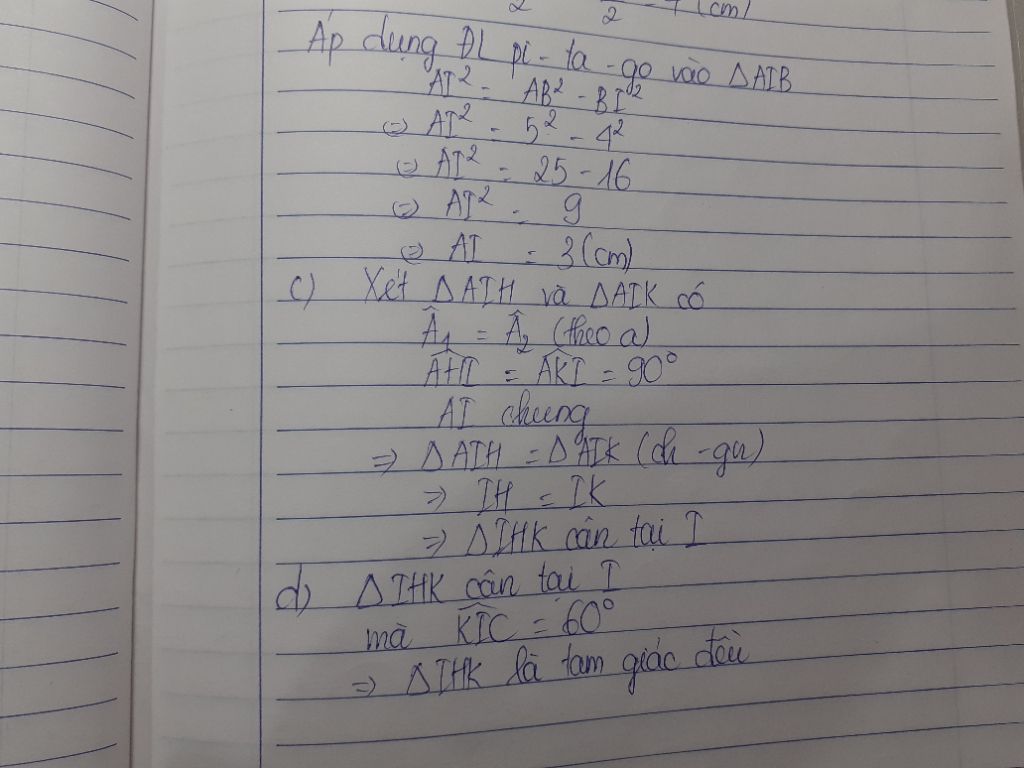 2 2 = 4 (cm)
Áp dụng ĐL pi-ta-go vào ΔAIB
AI² = AB² - BI²
(=) AI² = 5² - 4²
(=) AI² = 25 - 16
(=) AI² = 9
(=) AI = 3 (cm)
c) Xét ΔAIH và ΔAIK có
Â₁ = Â₂ (theo a)
AHI = AKI = 90°
AI chung
⇒ ΔAIH = ΔAIK (ch - gn)
⇒ IH = IK
⇒ ΔIHK cân tại I
d) ΔIHK cân tại I
mà KIC = 60°
⇒ ΔIHK là tam giác đều